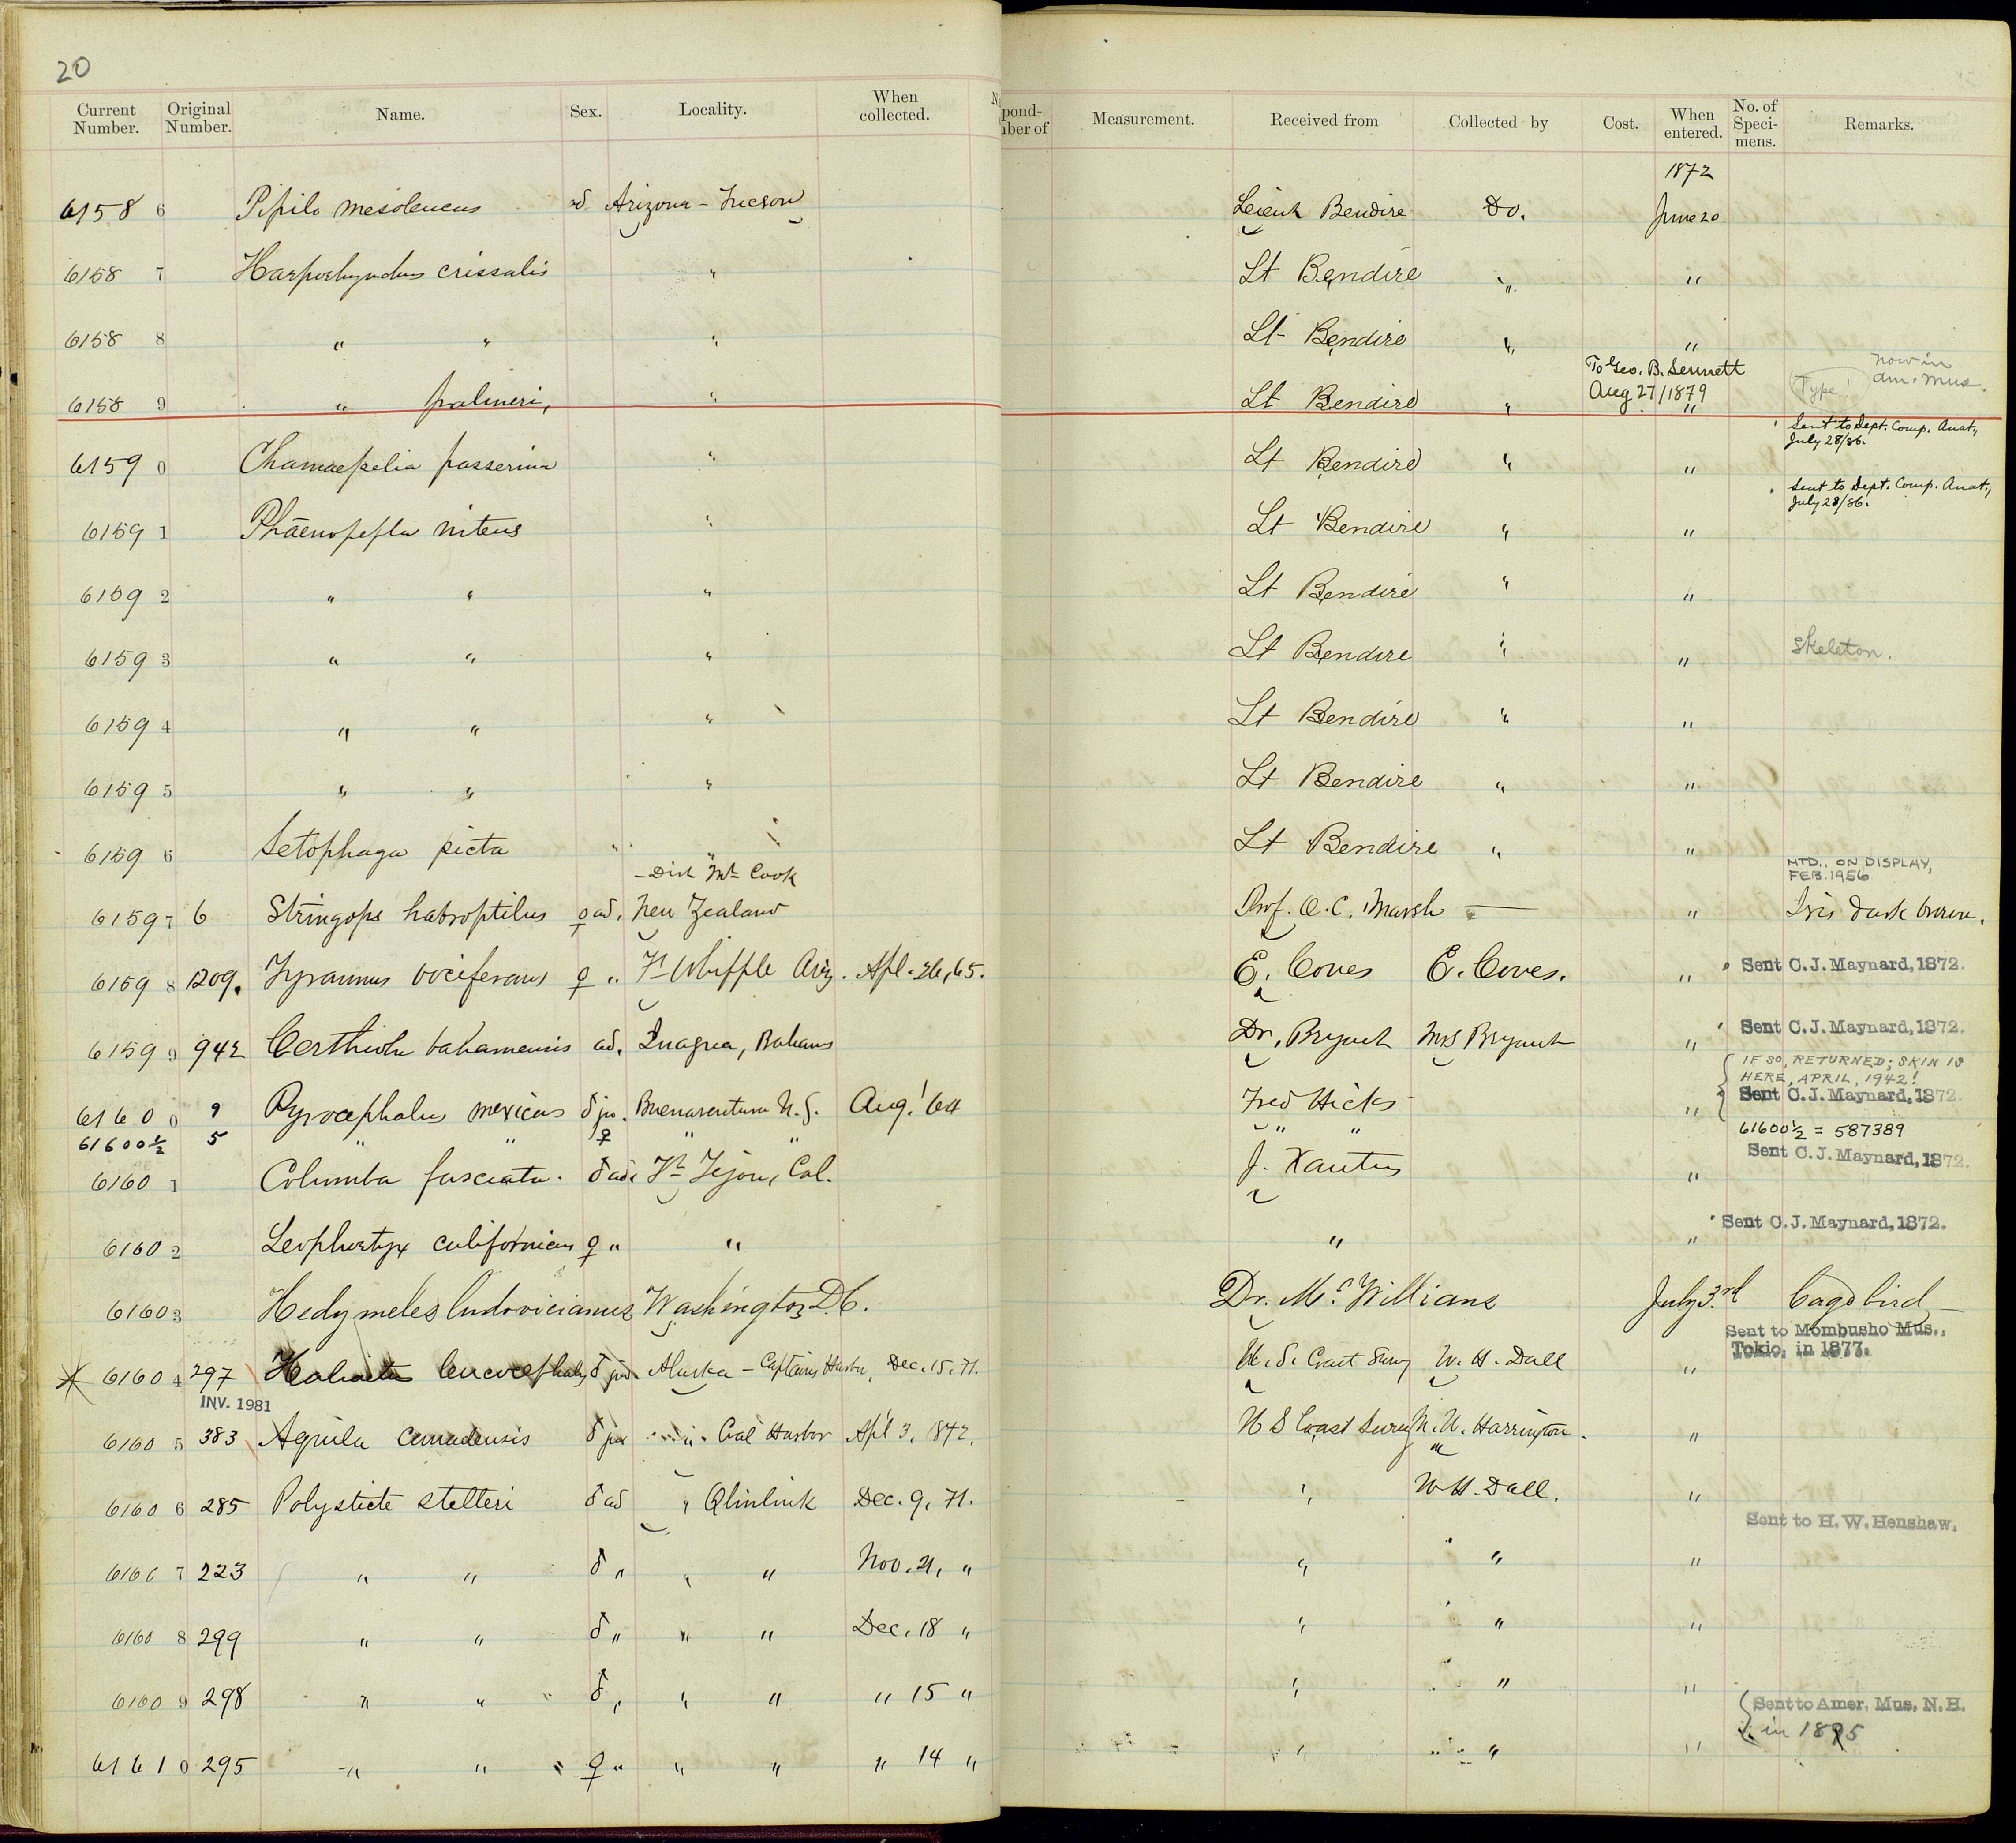 20
Current Number. Original Number. Name. Sex. Locality. When collected. pond- ber of Measurement. Received from Collected by Cost. When entered. No. of Speci- mens. Remarks.
1872
61586 Pipilo mesoleucus Arizona - Tucson Leieut Bendire Do. June 20
61587 Harporhynchus crissalis " Lt Bendire " "
61588 " " " Lt Bendire " "
To Geo. B. Sennett now in
61589 " palmeri, " Lt Bendire " Aug 27/1879 " Type! Am. Mus.
Sent to Dept. Comp. Anat., July 28/86.
61590 Chamaepelia passerina " Lt Bendire " "
Sent to Dept. Comp. Anat., July 28/86.
61591 Phaenopepla nitens " Lt Bendire " "
61592 " " " Lt Bendire " "
61593 " " " Lt Bendire " " Skeleton.
61594 " " " Lt Bendire " "
61595 " " " Lt Bendire " "
61596 Setophaga picta " " Lt Bendire " "
- Dist Mt Cook MTD., ON DISPLAY, FEB. 1956
61597 6 Stringops habroptilus ♀ ad. New Zealand Prof. O. C. Marsh — " Iris dark brown.
61598 1209. Tyrannus vociferans ♀ " Ft Whipple Ariz. Apl. 26, 65. E. Coues E. Coues. " Sent C. J. Maynard, 1872.
61599 942 Certhiola bahamensis ad. Inagua, Bahams Dr. Bryant Mrs Bryant " Sent C. J. Maynard, 1872.
IF SO, RETURNED; SKIN IS
HERE, APRIL, 1942!
61600 9 Pyrocephalus mexicus ♂ ju. Buenaventura N. G. Aug. '64 Fred Hicks " Sent C. J. Maynard, 1872.
61600½ 5 " " ♀ " " " " 61600½ = 587389
61601 Columba fasciata. ♂ ad. Ft Tejon, Cal. J. Xantus " Sent C. J. Maynard, 1872.
61602 Lophortyx californicus ♀ " " " " Sent C. J. Maynard, 1872.
61603 Hedymeles ludovicianus Washington D.C. Dr. Mc Willians July 3rd Cage bird —
Sent to Mombusho Mus., Tokio, in 1877.
61604 297 Haliaetus leucocephalus ♂ juv. Alaska - Captains Harbor, Dec. 15, 71. U. S. Coast Survy W. H. Dall "
INV. 1981
61605 383 Aquila canadensis ♂ juv " Coal Harbor Apl 3, 1872. U S Coast Survey M. W. Harrington. "
61606 285 Polysticte stelleri ♂ ad " Iliuliuk Dec. 9, 71. " W. H. Dall. "
Sent to H. W. Henshaw.
61607 223 " " ♂ " " " Nov. 21, " " " "
61608 299 " " ♂ " " " Dec. 18 " " " "
61609 298 " " ♂ " " " " 15 " " " " Sent to Amer. Mus. N. H.
in 1895
61610 295 " " ♀ " " " " 14 " " " "